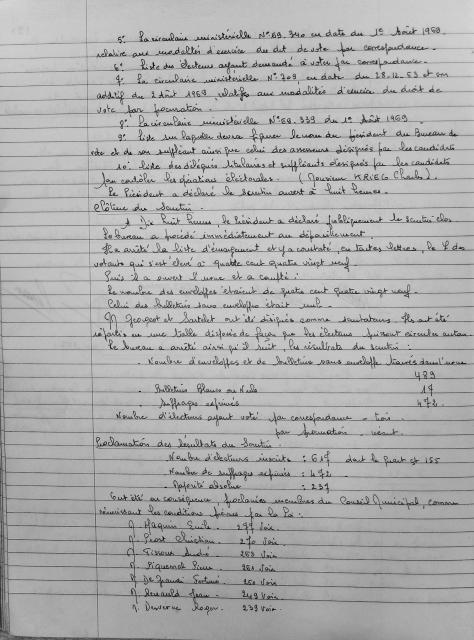 5° La circulaire ministérielle N° 69.340 en date du 1er Août 1969
relative aux modalités d'exercice du dt de vote par correspondance.
6° Liste des électeurs ayant demandé à voter par correspondance.
7° La circulaire ministérielle N° 709 en date du 28.12.53 et son
additif du 2 Août 1969 relatifs aux modalités d'exercice du droit de
vote par procuration.
8° La circulaire ministérielle N° 69.339 du 1er Août 1969.
9° liste sur laquelle devra figurer le nom du Président du Bureau de
vote et de son suppléant ainsi que celui des assesseurs désignés par les candidats
10° liste des délégués titulaires et suppléants désignés par les candidats
pour contrôler les opérations électorales. (Monsieur KRIEG Charles).
Le Président a déclaré le scrutin ouvert à huit heures.
Clôture du Scrutin
A Dix huit heures le Président a déclaré publiquement le scrutin clos
Le bureau a procédé immédiatement au dépouillement.
Il a arrêté la liste d'émargement et y a constaté, en toutes lettres, le de
votants qui s'est élevé à quatre cent quatre vingt neuf
Puis il a ouvert l'urne et a compté :
Le nombre des enveloppes étaient de quatre cent quatre vingt neuf
Celui des bulletins sans enveloppe était nul.
M Georgeot et ont été désignés comme scrutateurs. Ils ont été
répartis en une table disposée de façon que les électeurs puissent circuler autour
Le bureau a arrêté ainsi qu'il suit, les résultats du scrutin :
- Nombre d'enveloppes et de bulletins sans enveloppe trouvés dans l'urne
489
- Bulletins Blancs ou Nuls 17
- Suffrages exprimés 472.
Nombre d'électeurs ayant voté par correspondance = trois.
par procuration = néant.
Proclamation des résultats du Scrutin.
Nombre d'électeurs inscrits : 617 dont le quart est 155
Nombre de suffrages exprimés : 472
Majorité absolue : 237
Ont été en conséquence, proclamés membres du Conseil Municipal, comme
réunissant les conditions fixées par la Loi :
M Emile - 297 Voix.
M Christian - 270 Voix.
M André - 269 Voix
M Piquemal - 261 Voix
M De - 250 Voix
M Renauld Jean - 249 Voix
M Roger - 239 Voix.